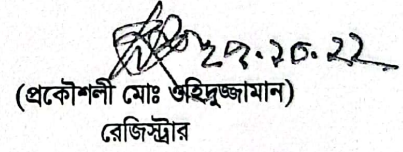 ২৭.১০.২২
(প্রকৌশলী মোঃ ওহিদুজ্জামান)
রেজিস্ট্রার